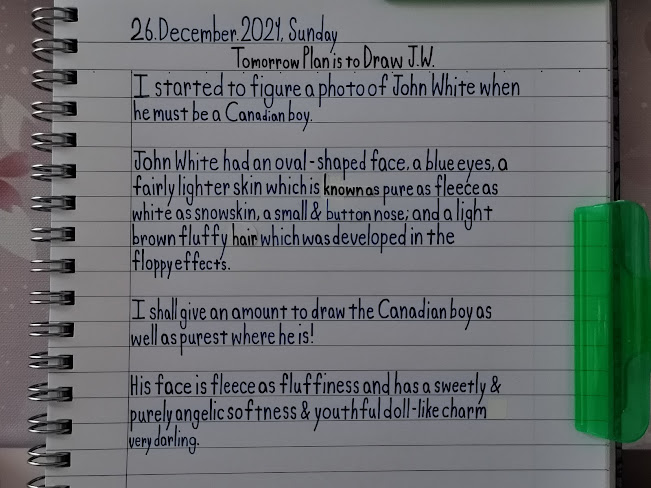 26.December.2021, Sunday
Tomorrow Plan is to Draw J.W.
I started to figure a photo of John White when
he must be a Canadian boy.
John White had an oval-shaped face, a blue eyes, a
fairly lighter skin which is known as pure as fleece as
white as snowskin, a small & button nose; and a light
brown fluffy hair which was developed in the
floppy effects.
I shall give an amount to draw the Canadian boy as
well as purest where he is!
His face is fleece as fluffiness and has a sweetly &
purely angelic softness & youthful doll-like charm
very darling.